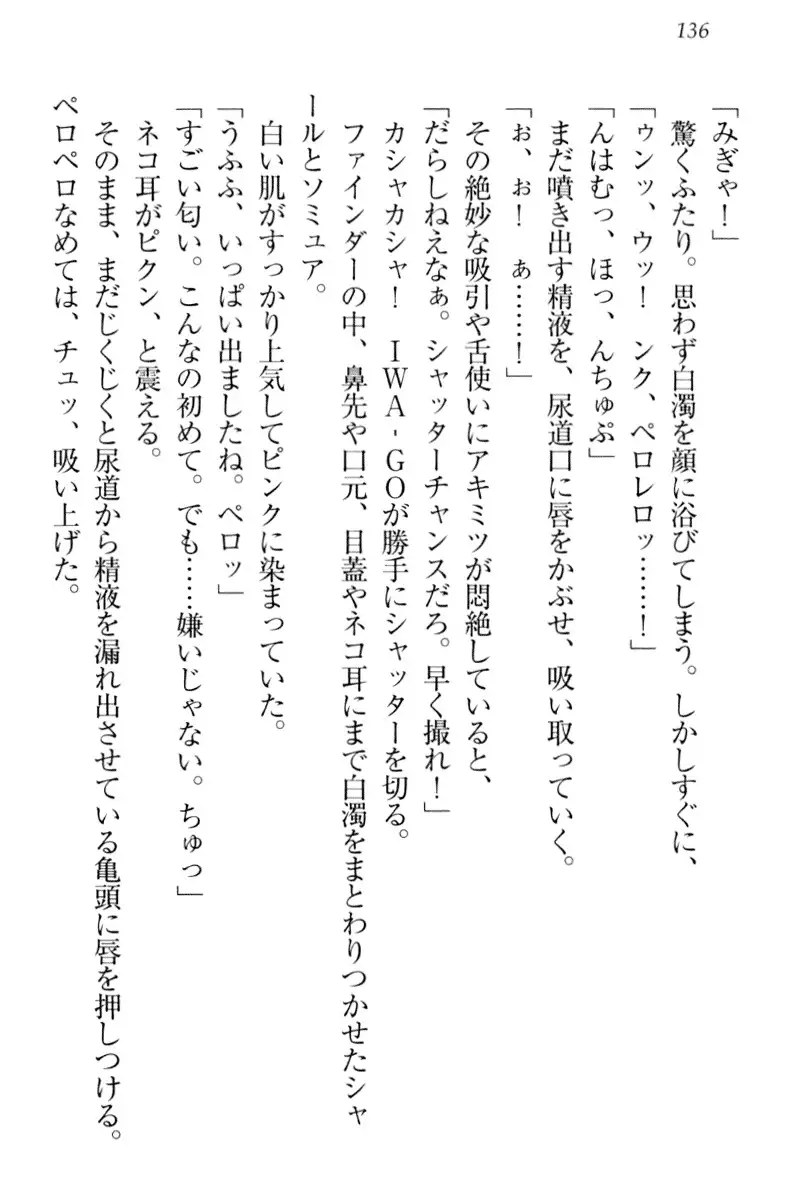 136
「みぎゃ！」
驚くふたり。思わず白濁を顔に浴びてしまう。しかしすぐに、
「ゥンッ、ウッ！　ンク、ペロレロッ……！」
「んはむっ、ほっ、んちゅぷ」
まだ噴き出す精液を、尿道口に唇をかぶせ、吸い取っていく。
「ぉ、ぉ！　ぁ……！」
その絶妙な吸引や舌使いにアキミツが悶絶していると、
「だらしねえなぁ。シャッターチャンスだろ。早く撮れ！」
カシャカシャ！　IWA-GOが勝手にシャッターを切る。
ファインダーの中、鼻先や口元、目蓋やネコ耳にまで白濁をまとわりつかせたシャ
ールとソミュア。
白い肌がすっかり上気してピンクに染まっていた。
「うふふ、いっぱい出ましたね。ペロッ」
「すごい匂い。こんなの初めて。でも……嫌いじゃない。ちゅっ」
ネコ耳がピクン、と震える。
そのまま、まだじくじくと尿道から精液を漏れ出させている亀頭に唇を押しつける。
ペロペロなめては、チュッ、吸い上げた。